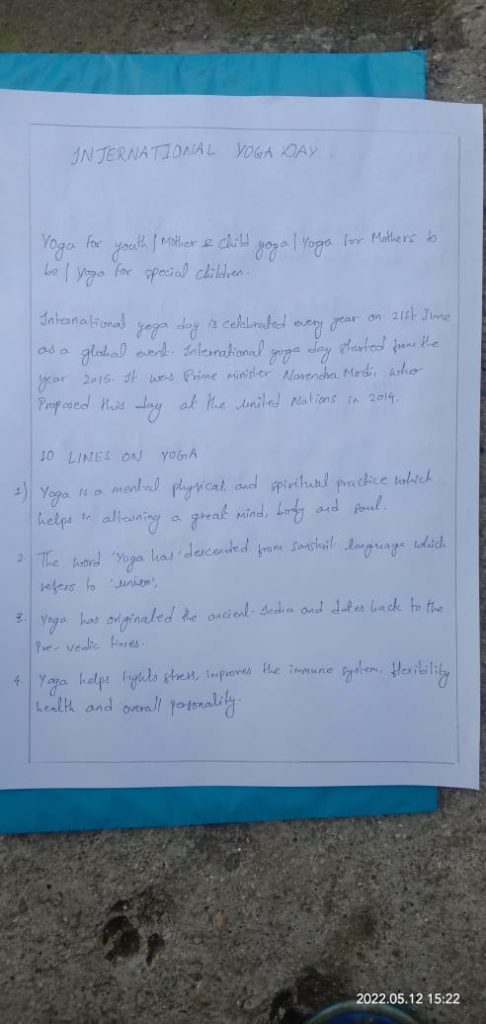 INTERNATIONAL YOGA DAY
Yoga for youth | Mother & Child yoga | Yoga for Mothers to
be | Yoga for special children.
International yoga day is celebrated every year on 21st June
as a global event. International yoga day started from the
year 2015. It was Prime minister Narendra Modi, who
Proposed this day at the United Nations in 2014.
10 LINES ON YOGA
1) Yoga is a mental physical, and spiritual practice which
helps in attaining a great mind, body and soul.
2. The word 'Yoga has' descended from sanskrit language which
refers to 'union'.
3. Yoga has originated the ancient India and dates back to the
Pre-vedic times.
4. Yoga helps fights stress, improves the immune system, flexibility
health and overall personality.
2022.05.12 15:22